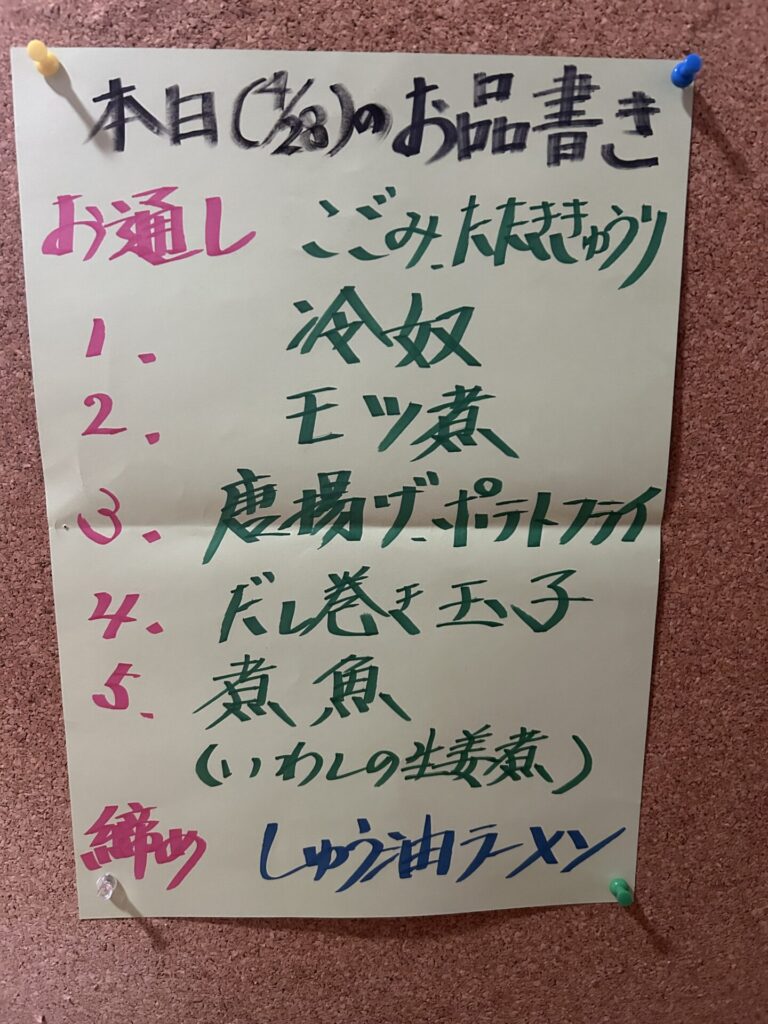 本日(4/28)のお品書き
お通し ごごみ、たたききゅうり
1. 冷奴
2. モツ煮
3. 唐揚げ、ポテトフライ
4. だし巻き玉子
5. 煮魚
(いわしの生姜煮)
締め しゅう油ラーメン